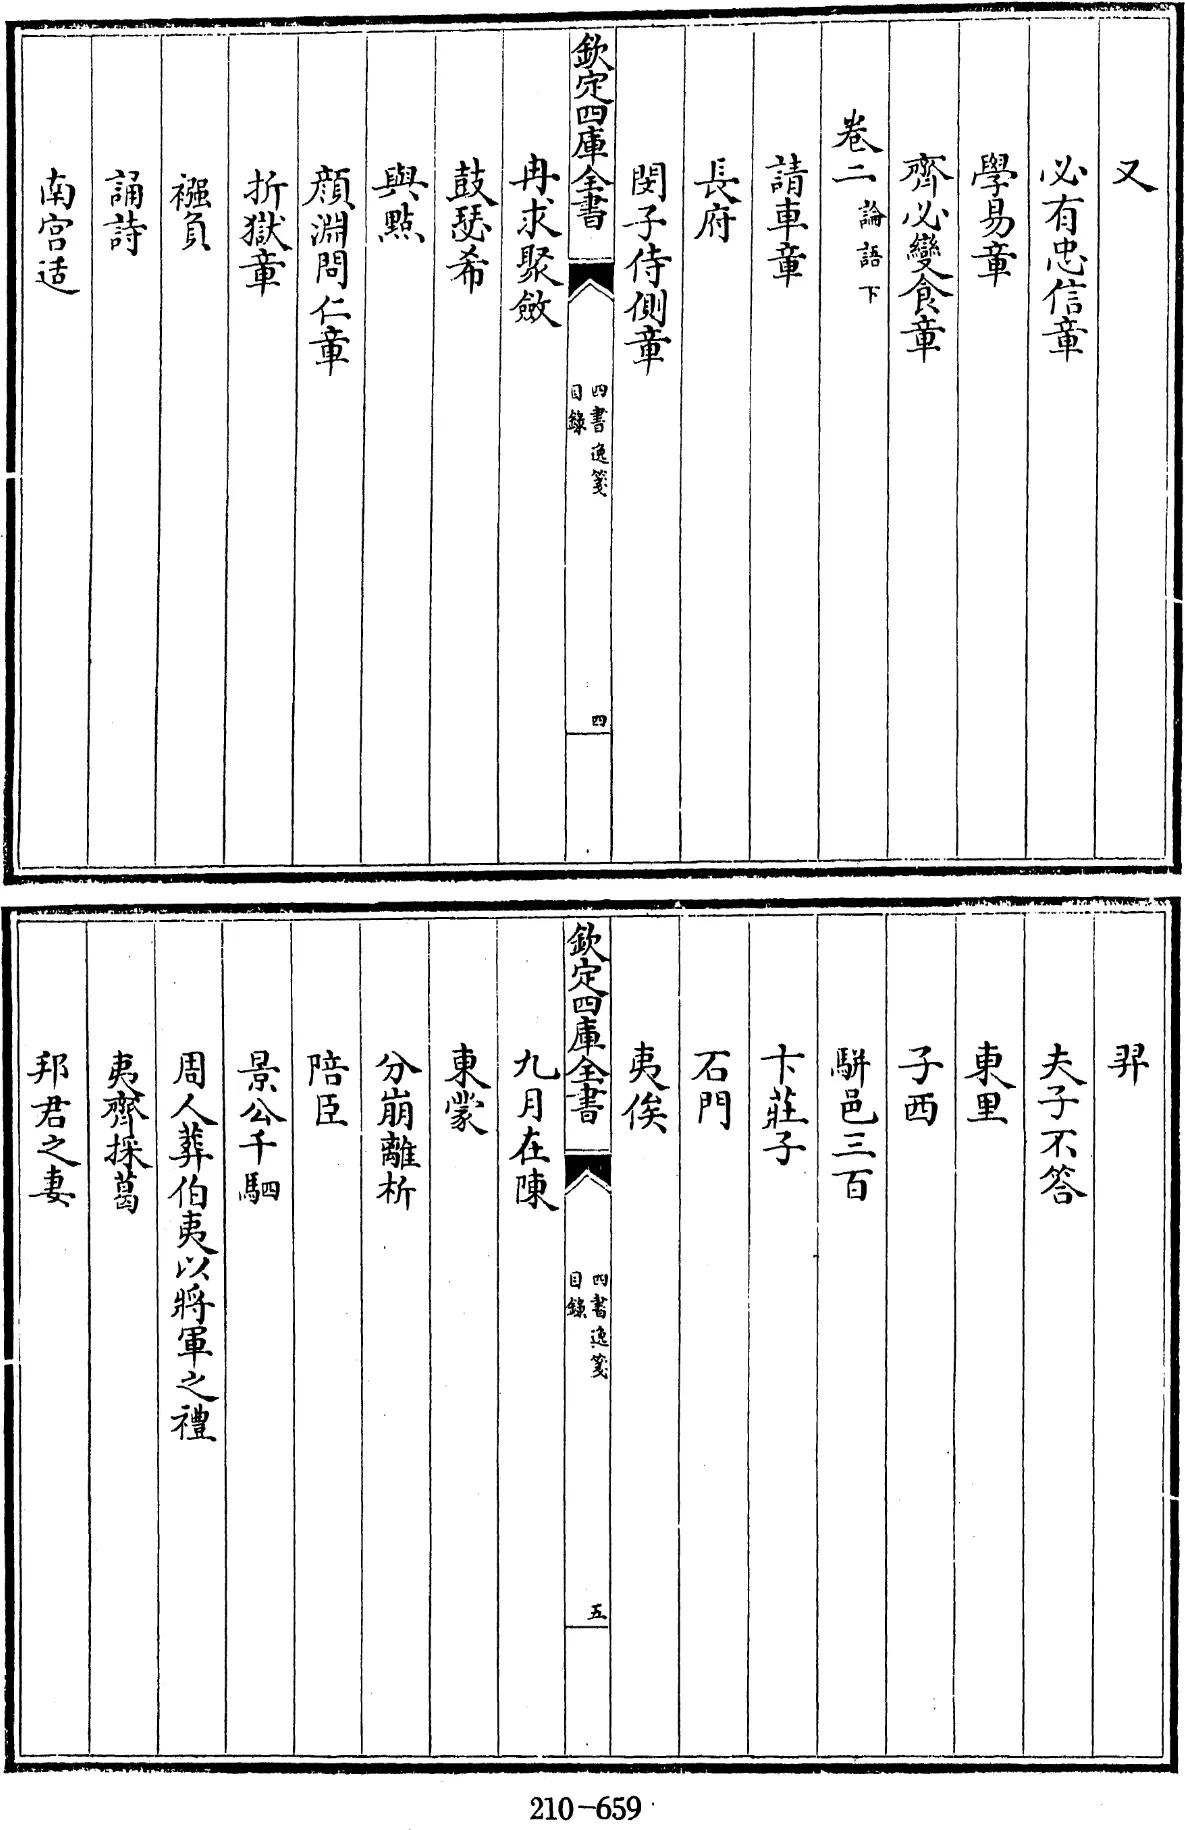 又
必有忠信章
學易章
齊必變食章
卷二論語下
請車章
長府
閔子侍側章
欽定四庫全書
四書逸箋
目錄
四
冉求聚斂
鼓瑟希
與點
顔淵問仁章
折獄章
襁負
誦詩
南宫适
羿
夫子不答
東里
子西
駢邑三百
卞莊子
石門
夷俟
欽定四庫全書
四書逸箋
目錄
五
九月在陳
東蒙
分崩離析
陪臣
景公千駟
周人葬伯夷以將軍之禮
夷齊採葛
邦君之妻
210-659